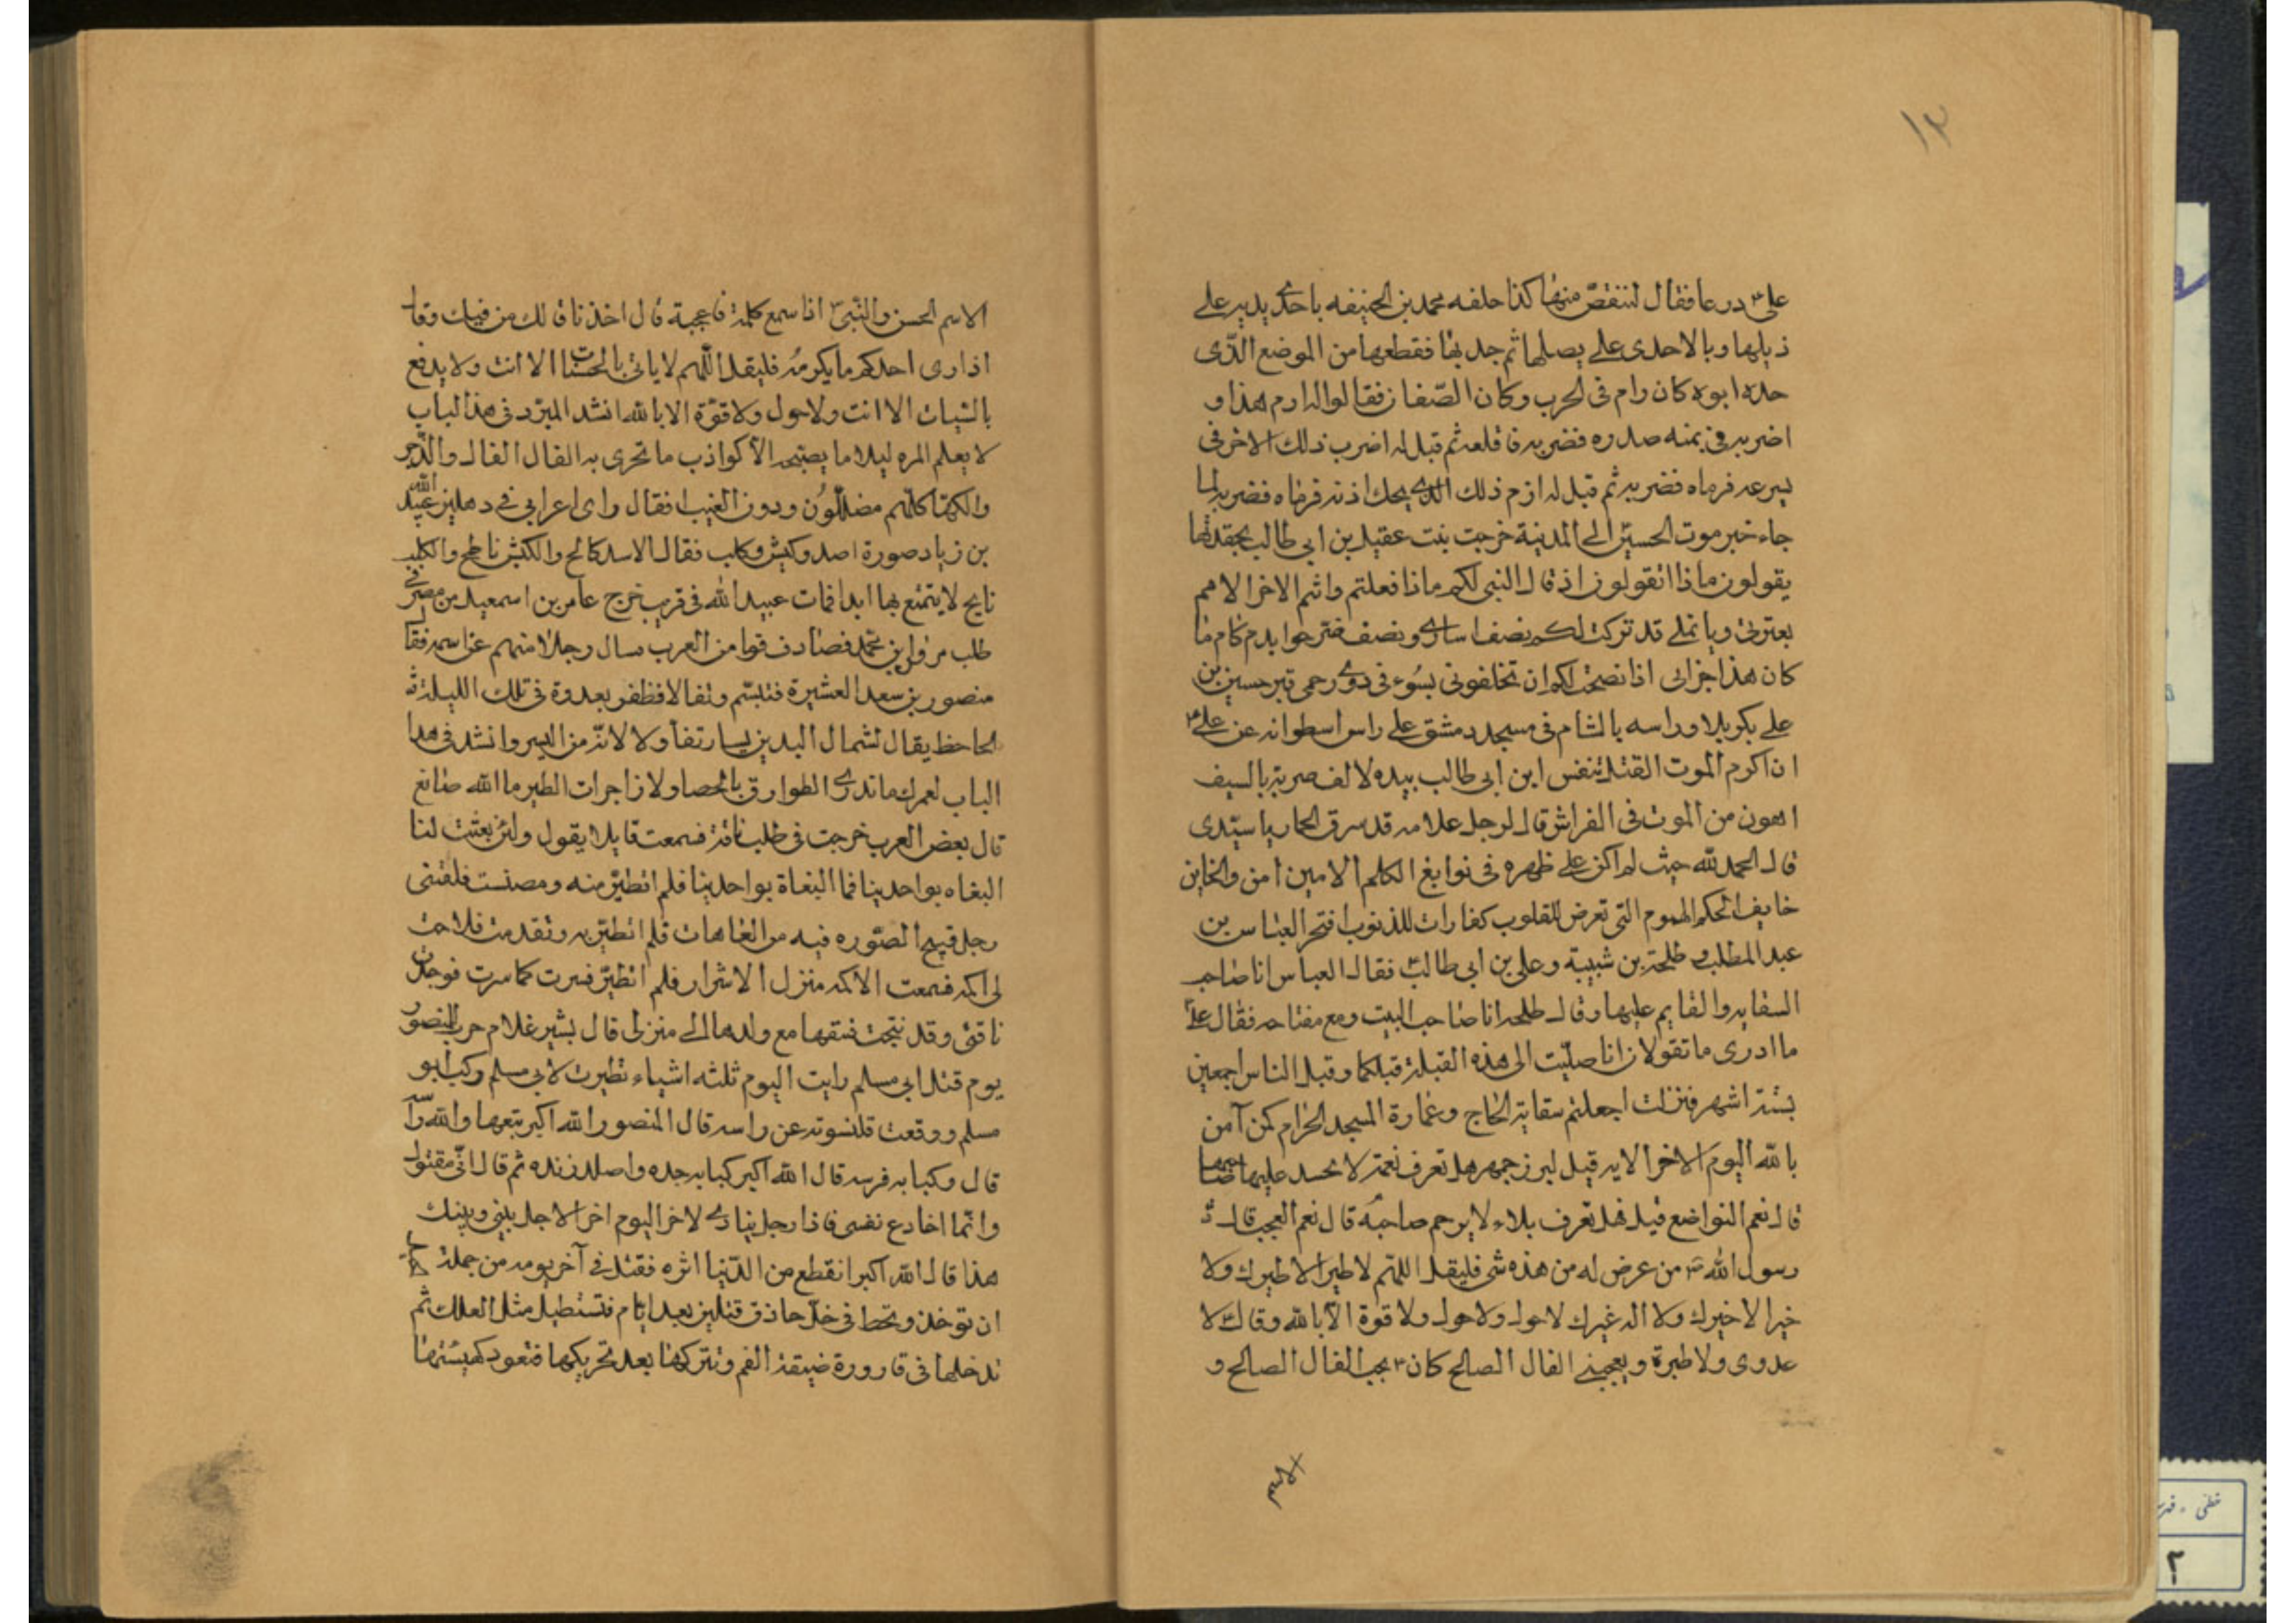 ١٣
على درعا فقال لتنقص منها كذا حلقه محمد بن الحنيفه باحدى يديه على
ذيلها وبالاحدى على يصلها ثم جذبها فقطعها من الموضع الذى
حده ابوه كان رام فى الحرب وكان الصفان فقالوا له ارم هذا و
اضربه فى يمنه صدره فضربه فاقلعه ثم قيل له اضرب ذلك الاخر فى
يسرعه فرماه فضربه ثم قيل له ازم ذلك الذى يحك اذنه فرماه فضربه لما
جاء خبر موت الحسين الى المدينة خرجت بنت عقيل بن ابى طالب
يقولون ماذا اتقولون اذ قال النبى لكم ماذا فعلتم وانتم الاخر الامم
بعترتى وباهلى قد تركت لكم نصف اسارى ونصف ضرجوا بدم كام ما
كان هذا جزائى اذا نصحت لكم ان تخلفونى بسوء فى ذوى رحمى قبر حسين بن
على بكربلا وراسه بالشام فى مسجد دمشق على راس اسطوانه عن على
ان اكرم الموت القتل بنفس ابن ابى طالب بيده لالف ضربة بالسيف
اهون من الموت فى الفراش قال لرجل غلامه قد سرق الحمار يا سيدى
قال الحمد لله حيث لم اكن على ظهره فى نوابغ الكلم الامين امن والخاين
خايف الحكم الهموم التى تعرض للقلوب كفارات للذنوب افتخر العباس بن
عبد المطلب و طلحة بن شيبة وعلى بن ابى طالب فقال العباس انا صاحب
السقايه والقايم عليها وقال طلحه انا صاحب البيت ومع مفتاحه فقال على
ما ادرى ما تقولان انا صليت الى هذه القبلة قبلكما وقبل الناس اجمعين
بستة اشهر فنزلت اجعلتم سقاية الحاج وعمارة المسجد الحرام كمن آمن
بالله اليوم الاخر الايه قيل لبرزجمهر هل تعرف نعمة لا يحسد عليها صاحبها
قال نعم التواضع قيل فهل تعرف بلاء لا يرحم صاحبه قال نعم العجب قال
رسول الله من عرض له من هذه شى فليقل اللهم لا طير الا طيرك ولا
خير الا خيرك ولا اله غيرك لا حول ولا حول ولا قوة الا بالله وقال لا
عدوى ولا طيرة ويعجبنى الفال الصالح كان يحب الفال الصالح و
الاسم
الاسم الحسن والنبى انا سمع كلمة فاعجبة قال اخذنا فالك من فيك وقال
اذا راى احدكم ما يكرمه فليقل اللهم لا ياتى بالحسنات الا انت ولا يدفع
بالسيات الا انت ولا حول ولا قوة الا بالله انشد المبرد فى هذا الباب
لا يعلم المره ليلا ما يصبحه الا كواذب ما تجرى به الفال الفال والزجر
والكهان كلهم مضللون ودون الغيب افقال راى اعرابى فى دهليز عبيد الله
بن زياد صورة اسد وكبش وكلب فقال الاسد كالح والكبش ناطح والكلب
نابح لا يتمتع بها ابدا فمات عبيد الله فى قريب خرج عامر بن اسمعيل من مصر فى
طلب مروان بن محمد فصادف قوما من العرب سال رجلا منهم عن اسمه فقال
منصور بن سعد العشيرة فتبسم وتفالا فظفر بعدوه فى تلك الليلة
الجاحظ يقال لشمال اليدين يسار تفاولا لانه من اليسر وانشد فى هذا
الباب لعمرك ما تدرى الطوارق بالحصا ولا زاجرات الطير ما الله صانع
قال بعض العرب خرجت فى طلب ناقة فسمعت قايلا يقول ولئن بعثت لنا
البغاه بواحدينا فما البغاة بواحدينا فلم اتطير منه ومضيت فلقينى
رجل قبيح الصوره فيه من العاهات فلم اتطير به وتقدمت فلاحت
لى اكمه فسمعت الاكمه منزل الاشرار فلم اتطير فسرت كما سرت فوجدت
ناقتى وقد نتجت فسقها مع ولدها الى منزلى قال بشير غلام حرب المنصور
يوم قتل ابى مسلم رايت اليوم ثلثه اشياء تطيرت لابى مسلم ركب ابو
مسلم ووقعت قلنسوته عن راسه قال المنصور الله اكبر تبعها والله راسه
قال وكبا به فرسه قال الله اكبر كبا به جده واصلد زنده ثم قال انى مقتول
وانما اخادع نفسى فاذا رجل ينادى لاخر اليوم اخر الاجل بينى وبينك
هذا قال الله اكبر انقطع من الدنيا اثره فقتل فى آخر يومه من جملة
ان توخذ وتحط فى خل حاذق قتلين بعد ايام فتستطيل مثل العلك ثم
تدخلها فى قارورة ضيقة الفم وتتركها بعد تحريكها فتعود كهيئتها
٢